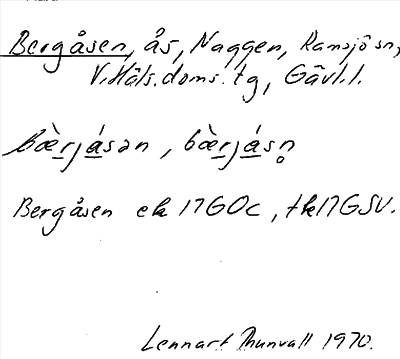 Bergåsen, ås, Naggen, Ramsjö sn,
V. Häls. doms. tg, Gävl. l.
bæ̀rjásən, bæ̀rjásn̥
Bergåsen ek 17GOc, tk17GSV.
Lennart Thunvall 1970.